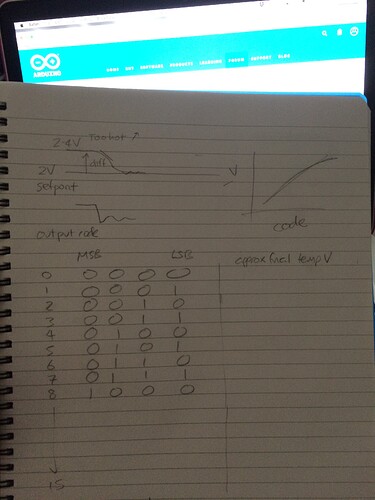 ARDUINO
HOME BUY SOFTWARE PRODUCTS LEARNING FORUM SUPPORT BLOG
2.4V Too hot ↗
diff
2V
Setpoint
V
code
output rate
MSB LSB approx final temp V
0 0 0 0 0
1 0 0 0 1
2 0 0 1 0
3 0 0 1 1
4 0 1 0 0
5 0 1 0 1
6 0 1 1 0
7 0 1 1 1
8 1 0 0 0
15